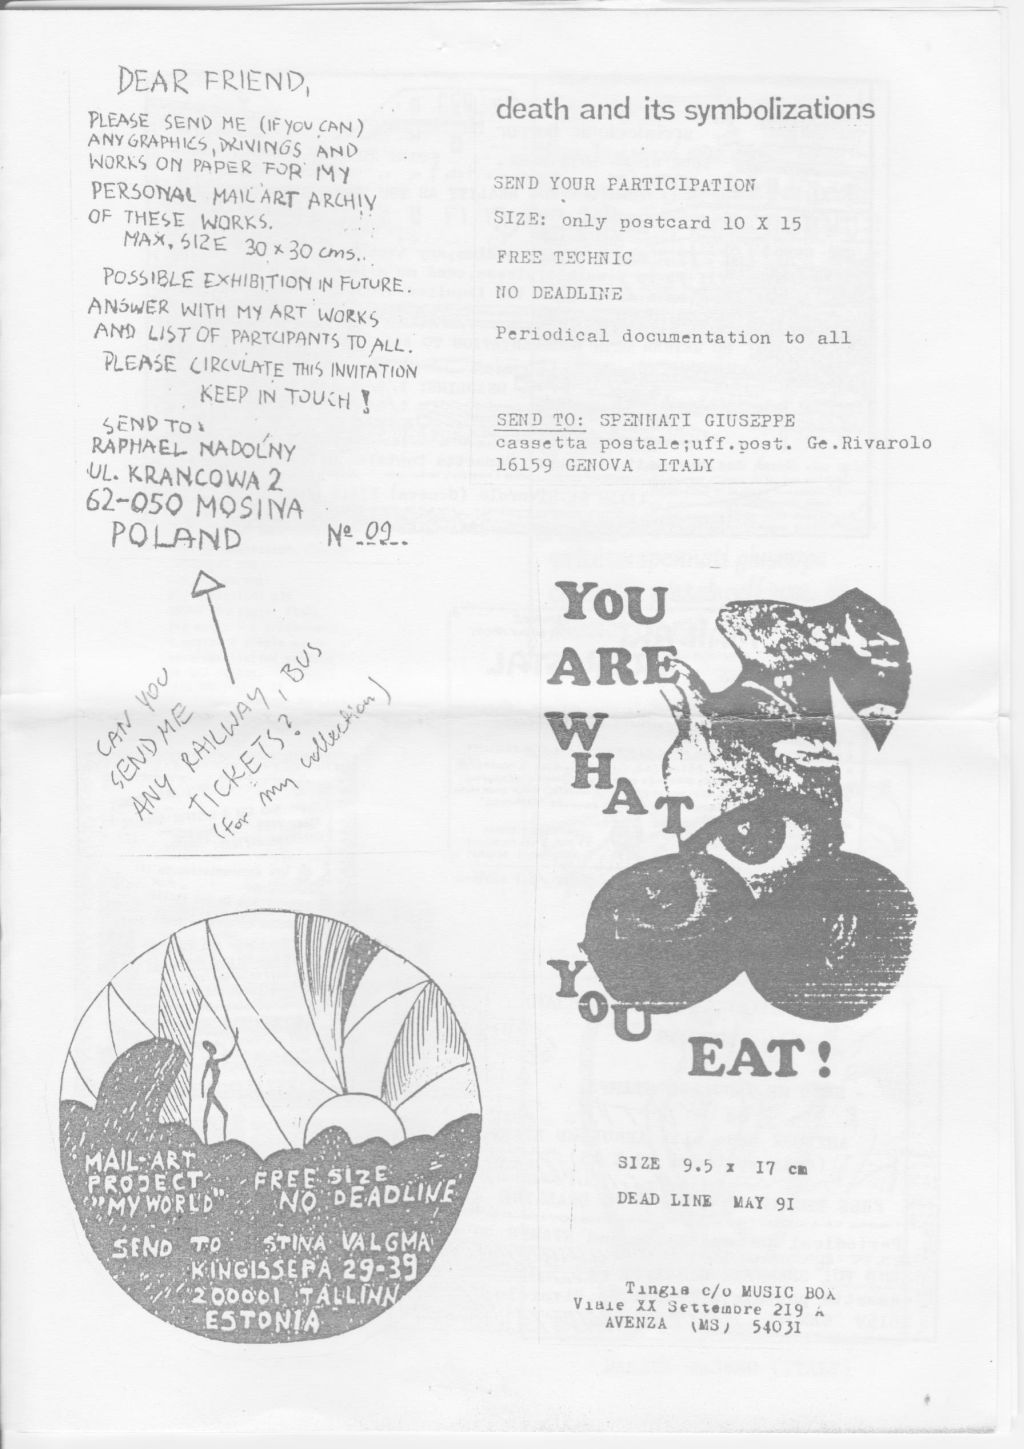 DEAR FRIEND,
PLEASE SEND ME (IF YOU CAN)
ANY GRAPHICS, DRIVINGS AND
WORKS ON PAPER FOR MY
PERSONAL MAIL ART ARCHIV
OF THESE WORKS.
MAX. SIZE 30 x 30 cms..
POSSIBLE EXHIBITION IN FUTURE.
ANSWER WITH MY ART WORKS
AND LIST OF PARTCIPANTS TO ALL.
PLEASE CIRCULATE THIS INVITATION
KEEP IN TOUCH!
SEND TO:
RAPHAEL NADOLNY
UL. KRANCOWA 2
62-050 MOSINA
POLAND Nº 09
CAN YOU
SEND ME
ANY RAILWAY, BUS
TICKETS?
(for my collection)
death and its symbolizations
SEND YOUR PARTICIPATION
SIZE: only postcard 10 X 15
FREE TECHNIC
NO DEADLINE
Periodical documentation to all
SEND TO: SPENNATI GIUSEPPE
cassetta postale;uff.post. Ge.Rivarolo
16159 GENOVA ITALY
YOU
ARE
WHAT
YOU
EAT!
SIZE 9.5 x 17 cm
DEAD LINE MAY 91
Tingis c/o MUSIC BOX
Viale XX Settembre 219 A
AVENZA (MS) 54031
MAIL-ART
PROJECT
"MY WORLD"
FREE SIZE
NO DEADLINE
SEND TO STINA VALGMA
KINGISSEPA 29-39
200001 TALLINN
ESTONIA